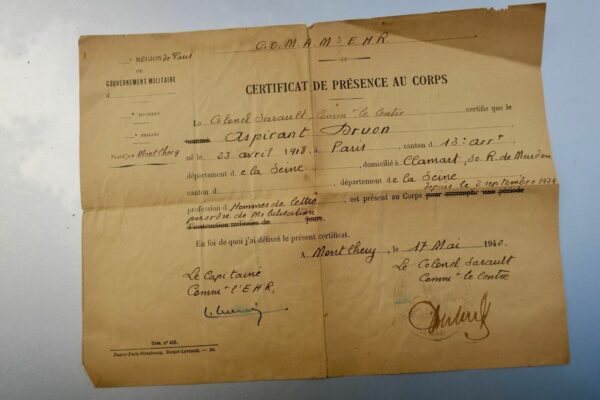 C.O.M.A.Mˢ E.H.R.
RÉGION de Paris
OU
GOUVERNEMENT MILITAIRE
DIVISION
BRIGADE
PLACE DE Montlhéry
CERTIFICAT DE PRÉSENCE AU CORPS
Le Colonel Sarault, Commᵗ le Centre certifie que le
nommé Aspirant Druon
né le 23 avril 1918, à Paris, canton d 13ᵉ arrᵗ
département de la Seine, domicilié à Clamart, 30 R. de Meudon
canton d, département de la Seine
depuis le 2 septembre 1939
profession d Hommes de lettre, est présent au Corps pour accomplir une période
par ordre de Mobilisation
d'instruction militaire de jours.
En foi de quoi j'ai délivré le présent certificat.
A Montlhéry, le 17 Mai 1940.
Le Capitaine
Commᵗ l'E.H.R,
Le Colonel Sarault
Commᵗ le Centre
Nancy-Paris-Strasbourg, Berger-Levrault.